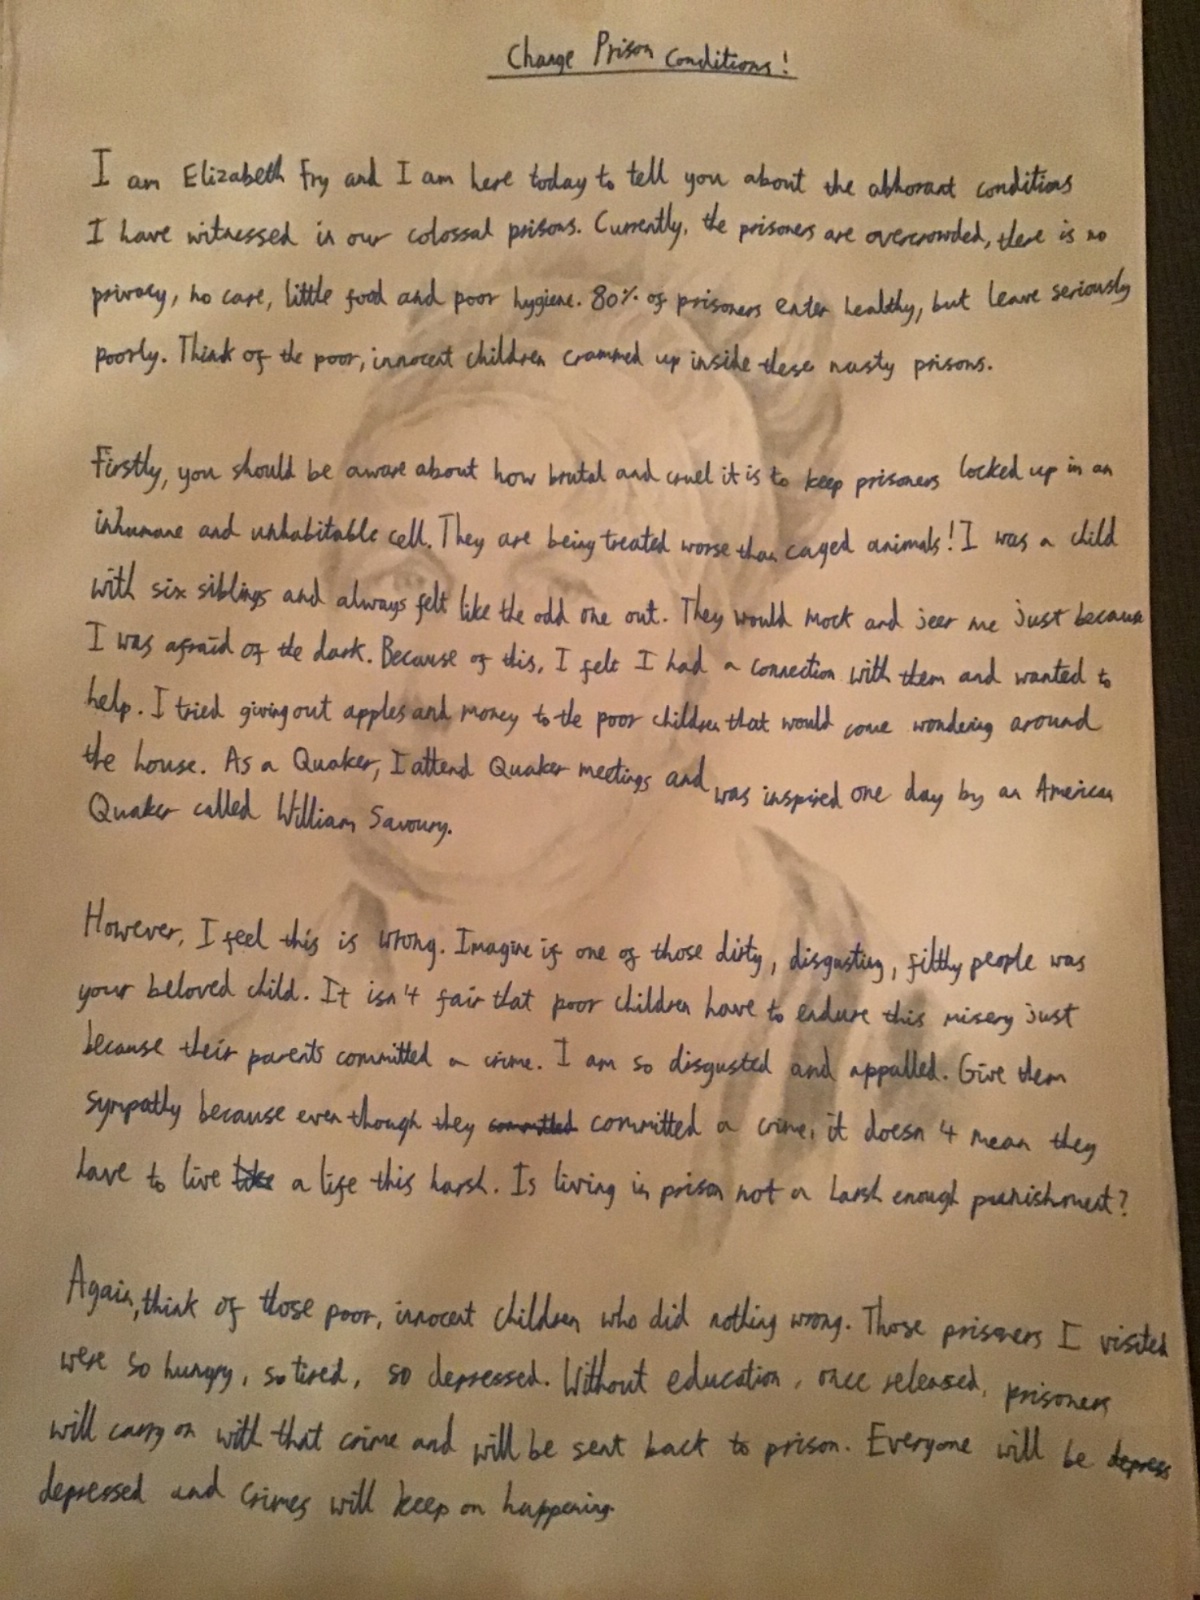 Change Prison Conditions!
I am Elizabeth Fry and I am here today to tell you about the abhorant conditions
I have witnessed in our colossal prisons. Currently, the prisoners are overcrowded, there is no
privacy, no care, little food and poor hygiene. 80% of prisoners enter healthy, but leave seriously
poorly. Think of the poor, innocent children crammed up inside these nasty prisons.
Firstly, you should be aware about how brutal and cruel it is to keep prisoners locked up in an
inhumane and unhabitable cell. They are being treated worse than caged animals! I was a child
with six siblings and always felt like the odd one out. They would mock and jeer me just because
I was afraid of the dark. Because of this, I felt I had a connection with them and wanted to
help. I tried giving out apples and money to the poor children that would come wondering around
the house. As a Quaker, I attend Quaker meetings and was inspired one day by an American
Quaker called William Savoury.
However, I feel this is wrong. Imagine if one of those dirty, disgusting, filthy people was
your beloved child. It isn't fair that poor children have to endure this misery just
because their parents committed a crime. I am so disgusted and appalled. Give them
sympathy because even though they committed committed a crime, it doesn't mean they
have to live like a life this harsh. Is living in prison not a harsh enough punishment?
Again, think of those poor, innocent children who did nothing wrong. Those prisoners I visited
were so hungry, so tired, so depressed. Without education, once released, prisoners
will carry on with that crime and will be sent back to prison. Everyone will be depress
depressed and crimes will keep on happening.